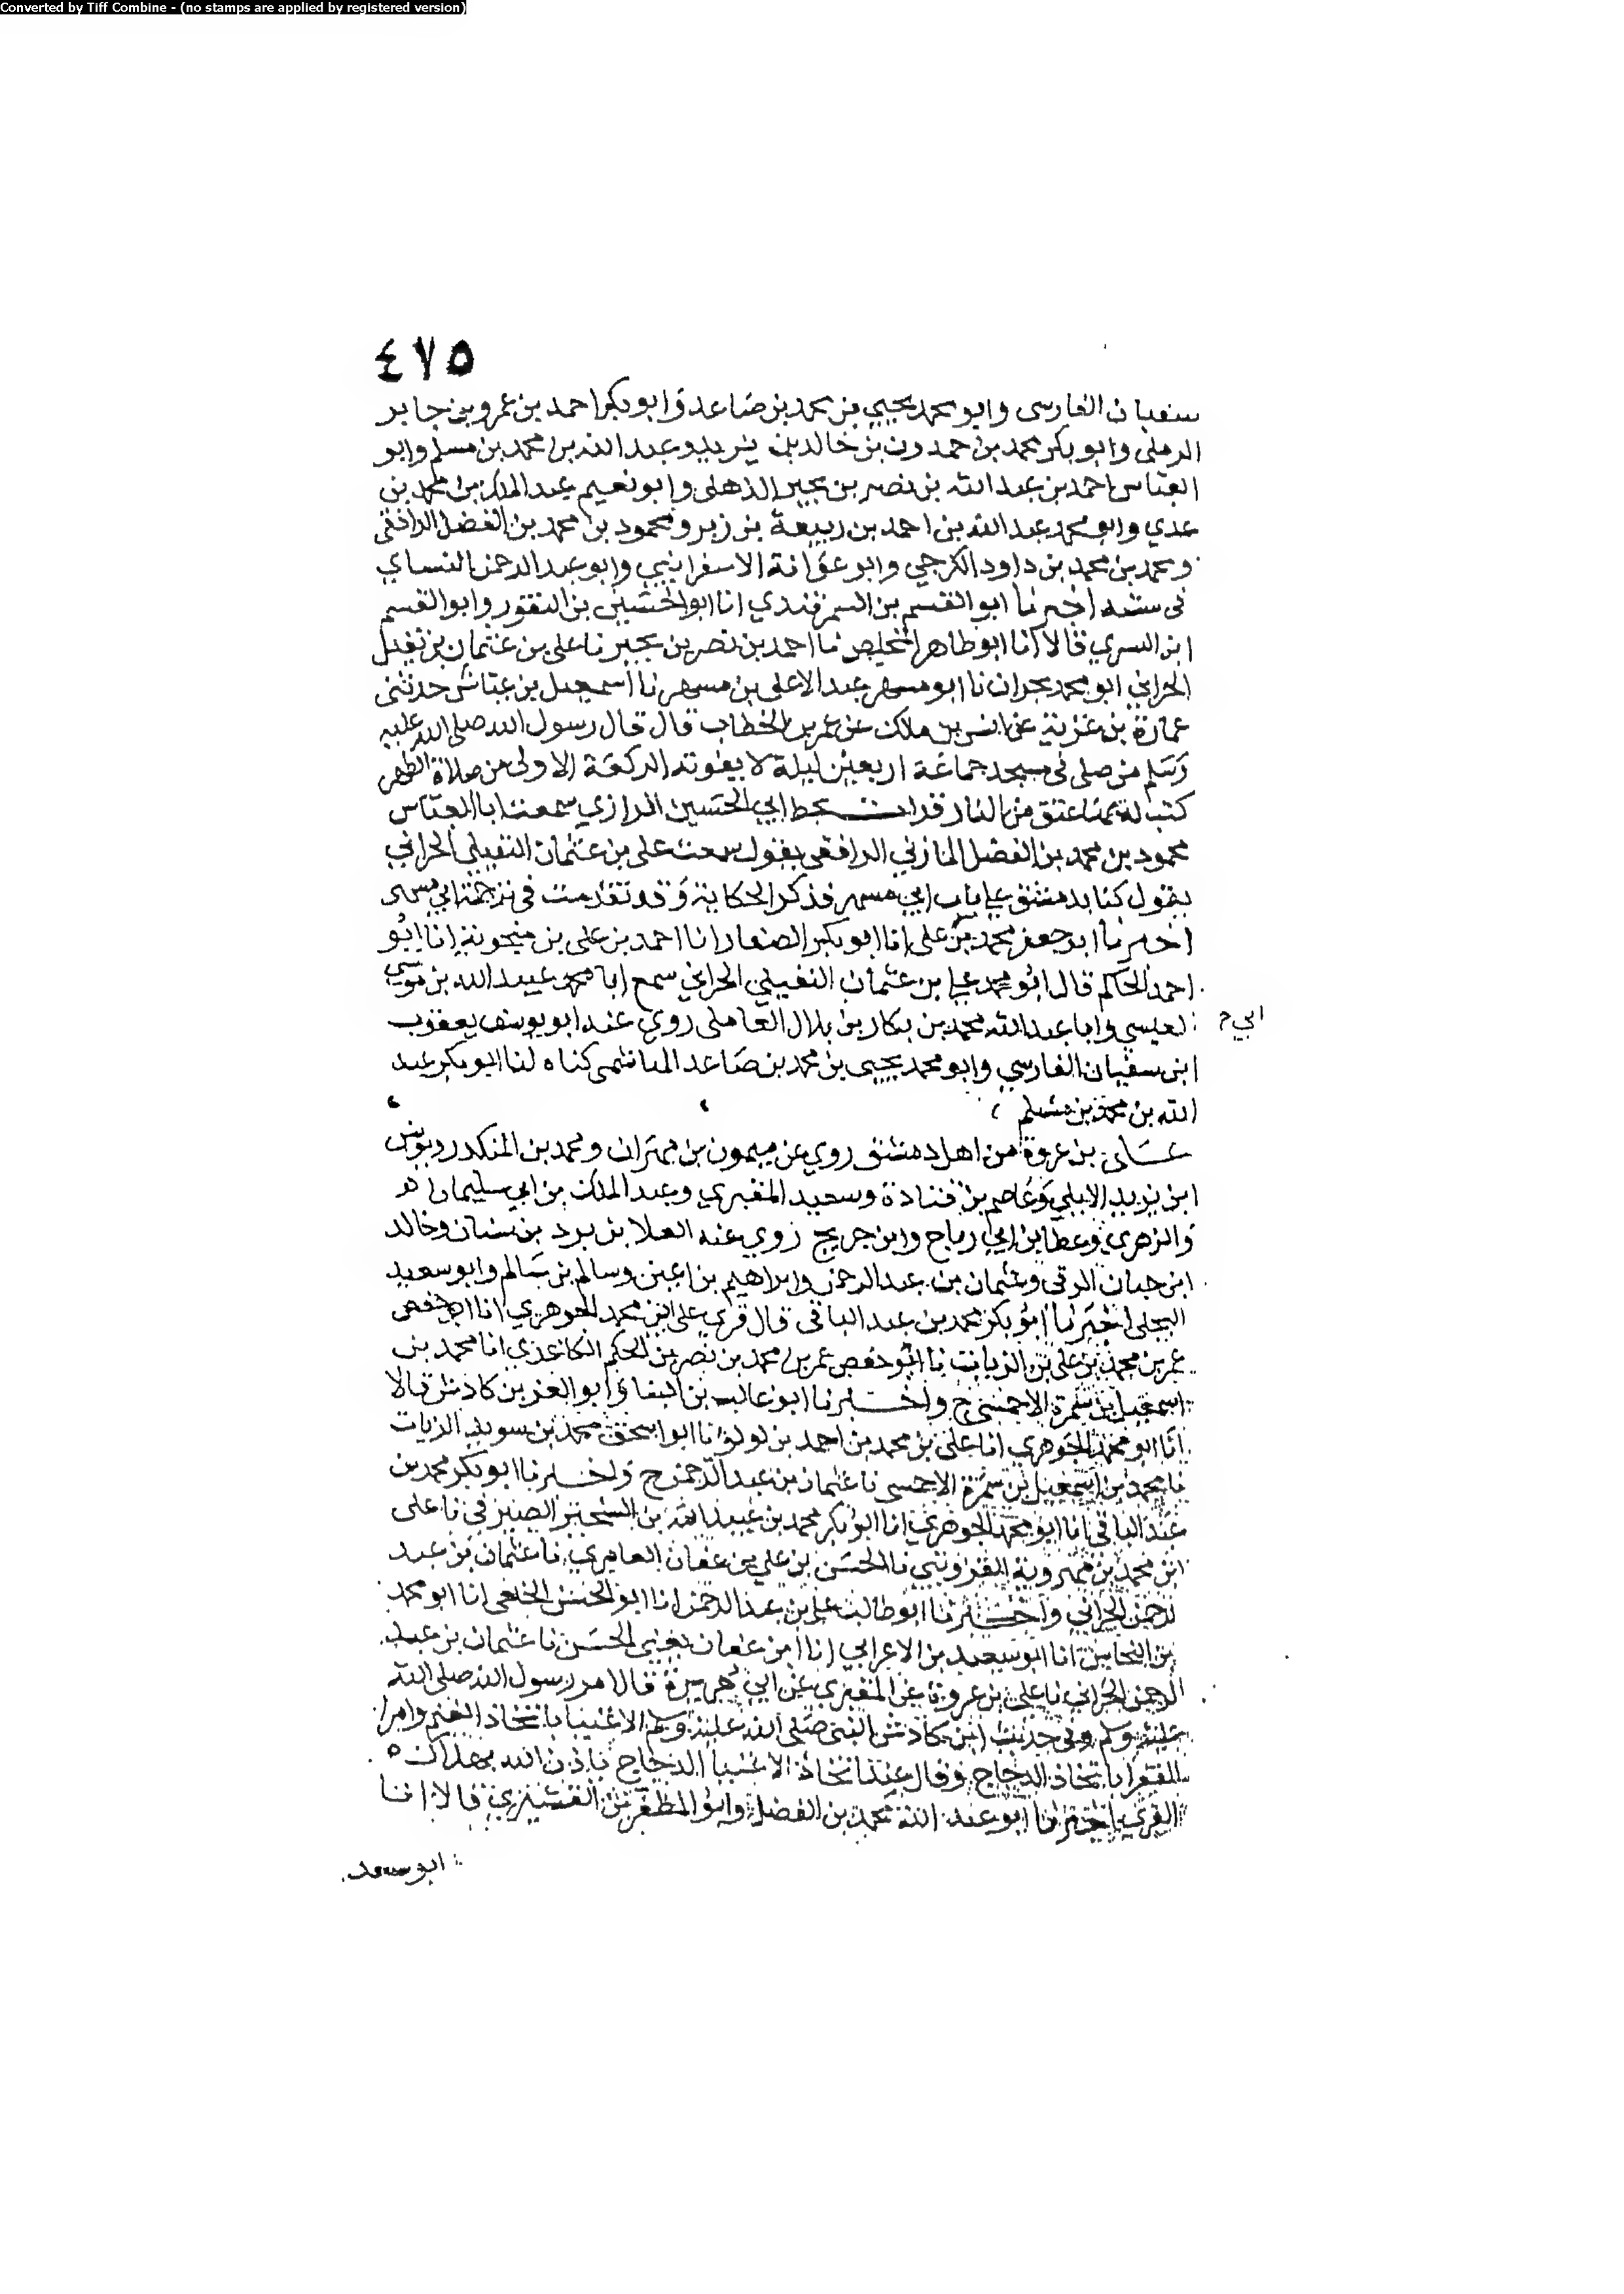 Converted by Tiff Combine - (no stamps are applied by registered version)
٤٧٥
سفيان الفارسى وابو محمد يحيى بن محمد بن صاعد وابو بكر احمد بن عمرو بن جابر
الرملى وابو بكر محمد بن حمدون بن خالد بن يزيد وعبد الله بن محمد بن مسلم وابو
العباس احمد بن عبد الله بن نصر بن بجير الذهلى وابو نعيم عبد الملك بن محمد بن
عدي وابو محمد عبد الله بن احمد بن ربيعة بن زبر ومحمود بن محمد بن الفضل الرافقى
ومحمد بن محمد بن داود الكرجي وابو عوانة الاسفراييني وابو عبد الرحمن النساي
فى سننه اخبرنا ابو القسم بن السمرقندي انا ابو الحسين بن النقور وابو القسم
ابن البسري قالا انا ابو طاهر المخلص نا احمد بن نصر بن بجير نا على بن عثمان بن نفيل
الحراني ابو محمد بحران نا ابو مسهر عبد الاعلى بن مسهر نا اسمعيل بن عياش حدثنى
عمارة بن غزية عن انس بن ملك عن عمر بن الخطاب قال قال رسول الله صلى الله عليه
وسلم من صلى فى مسجد جماعة اربعين ليلة لا يفوته الركعة الاولى من صلاة الظهر
كتب له بها عتق من النار قرات بخط ابي الحسين الرازي سمعت ابا العباس
محمود بن محمد بن الفضل المازني الرافقى يقول سمعت على بن عثمان النفيلي الحراني
يقول كنا بدمشق على باب ابي مسهر فذكر الحكاية وقد تقدمت فى ترجمة ابي مسهر
اخبرنا ابو جعفر محمد بن على انا ابو بكر الصفار انا احمد بن على بن منجوية انا ابو
احمد الحاكم قال ابو محمد على بن عثمان النفيلي الحراني سمع ابا محمد عبيد الله بن موسى
العبسي وابا عبد الله محمد بن بكار بن بلال العاملى روى عنه ابو يوسف يعقوب
ابن سفيان الفارسي وابو محمد يحيى بن محمد بن صاعد الهاشمى كناه لنا ابو بكر عبد
الله بن محمد بن مسلم
على بن عروة من اهل دمشق روي عن ميمون بن مهران ومحمد بن المنكدر ويونس
ابن يزيد الايلي وعاصم بن قتادة وسعيد المقبري وعبد الملك بن ابي سليمان
والزهري وعطا بن ابي رباح وابن جريج روي عنه العلا بن برد بن سنان وخالد
ابن حيان الرقى وعثمان بن عبد الرحمن وابراهيم بن اعين وسالم بن سالم وابو سعيد
البجلى اخبرنا ابو بكر محمد بن عبد الباقى قال قري على ابن محمد الجوهري انا ابو حفص
عمر بن محمد بن على بن الزيات نا ابو حفص عمر بن محمد بن نصر بن الحكم الكاغذي انا محمد بن
اسمعيل بن سمرة الاحمسي ح واخبرنا ابو غالب بن البنا وابو العز بن كادش قالا
انا ابو محمد الجوهري انا على بن محمد بن احمد بن لولو نا ابو اسحق محمد بن سويد الزيات
نا محمد بن اسمعيل بن سمرة الاحمسى نا عثمان بن عبد الرحمن ح واخبرنا ابو بكر محمد بن
عبد الباقى انا ابو محمد الجوهري انا ابو بكر محمد بن عبيد الله بن الشخير الصيرفى نا على
ابن محمد بن مهروية القزويني نا الحسن بن علي بن عفان العامري نا عثمان بن عبد
الرحمن الحراني واخبرنا ابو طالب على بن عبد الرحمن انا ابو الحسن الخلعى انا ابو محمد
بن النحاس انا ابو سعيد بن الاعرابي انا ابن عفان يعني الحسن نا عثمان بن عبد
الرحمن الحراني نا على بن عروة عن المقبري عن ابي هريرة قال امر رسول الله صلى الله
عليه وسلم وفى حديث ابن كادش النبى صلى الله عليه وسلم الاغنيا باتخاذ الغنم وامر
الفقرا باتخاذ الدجاج وقال عند اتخاذ الاغنيا الدجاج ياذن الله بهلاك
القرى اخبرنا ابو عبد الله محمد بن الفضل وابو المظفر بن القشيري قالا انا
ابو سعد